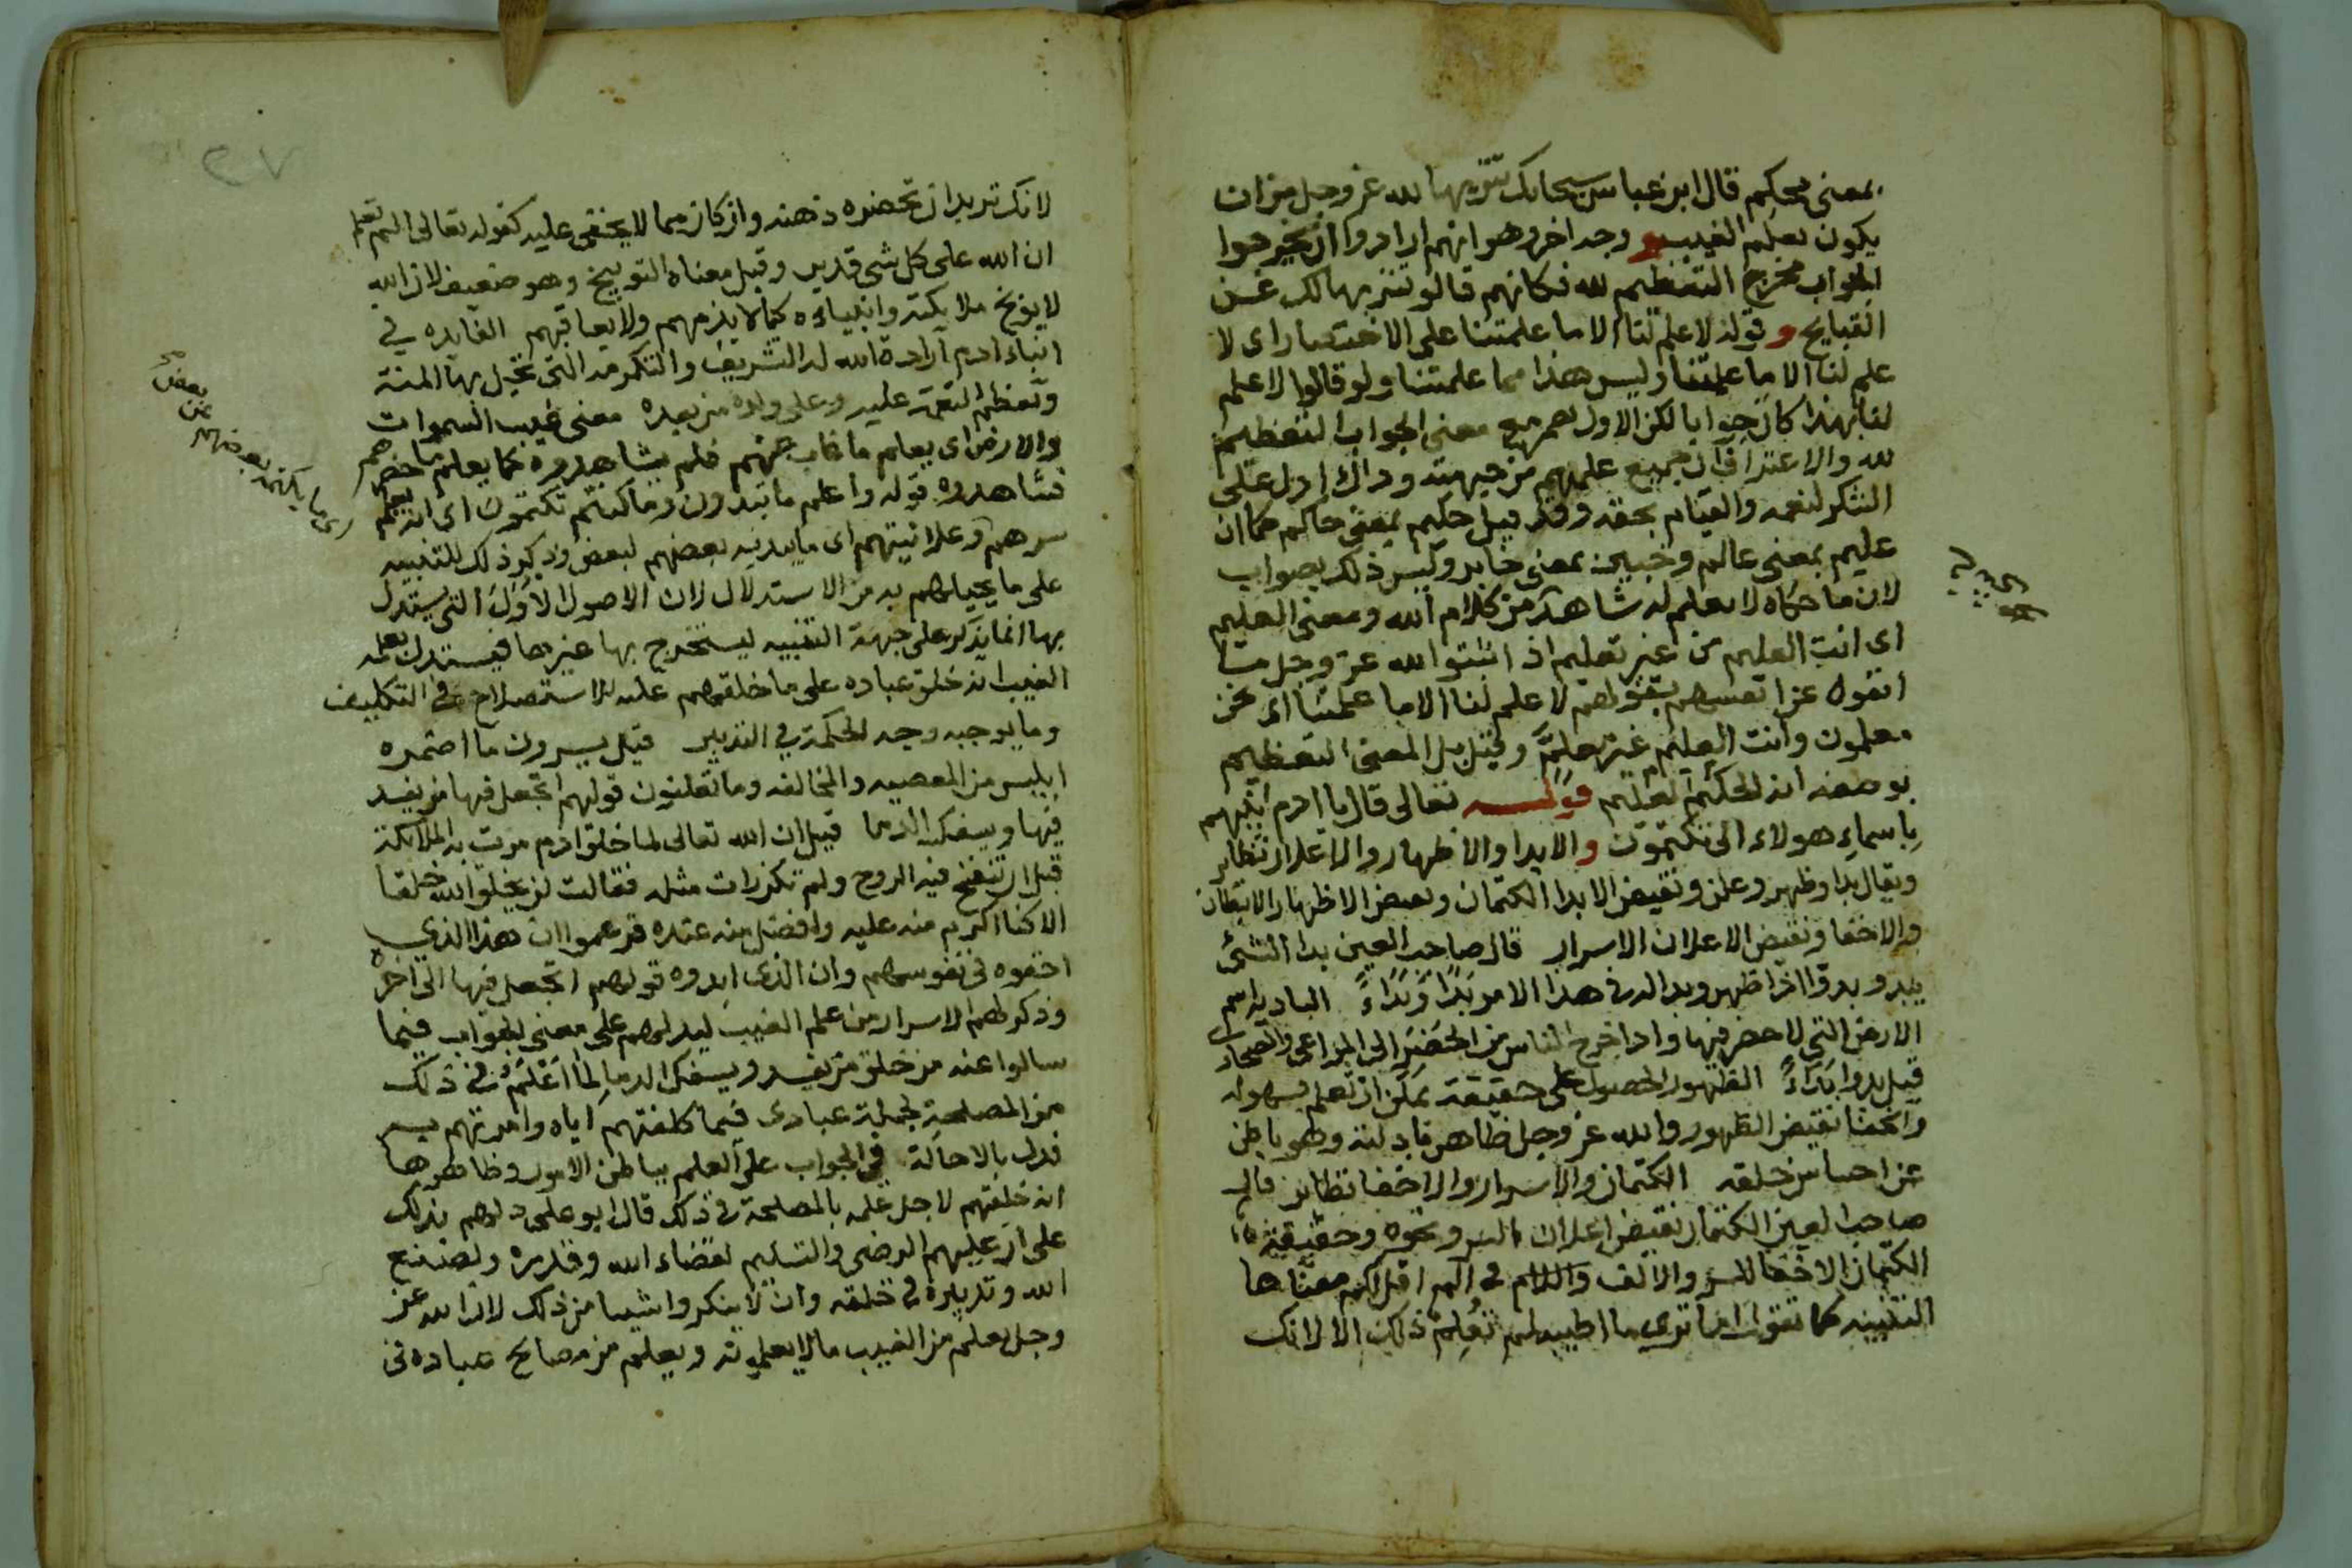 بمعنى محكم قال ابن عباس سبحانك تنزيها لله عز وجل من ان
يكون يعلم الغيب و وجه اخر وهو انهم ارادوا ان يخرجوا
الجواب مخرج التعظيم لله فكانهم قالو تنزيها لك عن
القبايح و قوله لا علم لنا الا ما علمتنا على الاختصار اى لا
علم لنا الا ما علمتنا وليس هذا مما علمتنا ولو قالوا لا علم
لنا بهذا كان جوابا لكن الاول معنى الجواب التعظيم
لله والاعتراف ان جميع علمهم من جهته وذاك ادل على
الشكر لنعمه والقيام بحقه وقد قيل حكيم بمعنى حاكم كما ان
عليم بمعنى عالم وخبير بمعنى خابر وليس ذلك بصواب
لان ما حكاه لا يعلم له شاهد من كلام الله ومعنى العليم
اى انت العليم من غير تعليم اذ اثبتوا لله عز وجل ما
انفوه عن انفسهم بقولهم لا علم لنا الا ما علمتنا اى نحن
معلمون وانت العليم غير معلم وقيل بل المعنى التعظيم
بوصفه انه الحكيم العليم قوله تعالى قال يا ادم انبئهم
باسماء هولاء الى تكتمون والابدا والاظهار والاعلان نظاير
ويقال بدا وظهر وعلن ونقيض الابدا الكتمان ونقيض الاظهار الابطان
والاخفا ونقيض الاعلان الاسرار قال صاحب العين بدا الشئ
يبدو بدوّا اذا ظهر وبدا له في هذا الامر بَدًا وَبَدَاءً البادية اسم
الارض التي لا حضر فيها واذا خرج الناس من الحضر الى المراعى والصحارى
قيل بدوا بَدَاءً الظهور الحصول على حقيقة يمكن ان تعلم بسهولة
والخفا نقيض الظهور والله عز وجل ظاهر بادلته وهو باطن
عن احساس خلقه الكتمان والاسرار والاخفا نظاير قال
صاحب العين الكتمان نقيض اعلان السر ونحوه وحقيقة
الكتمان الاخفا للسر والالف واللام في الم اقل لكم معناها
التنبيه كما تقول اما ترى ما اطيب لم تعلم ذلك الا لانك
لانك تريد ان تحضره ذهنه وان كان مما لا يخفى عليه كقوله تعالى الم تعلم
ان الله على كل شى قدير وقيل معناه التوبيخ وهو ضعيف لان الله
لا يوبخ ملايكته وانبياءه كما لا يذمهم ولا يعاقبهم الفايده في
انباء ادم ارادة الله له التشريف والتكرمة التى تجل بها المنة
وتعظم النعمة عليه وعلى ولده من بعده معنى غيب السموات
والارض اى يعلم ما غاب عنهم فلم يشاهدوه كما يعلم ما حضرهم
فشاهدوه قوله واعلم ما تبدون وما كنتم تكتمون اى انه يعلم
سرهم وعلانيتهم اى ما يبديه بعضهم لبعض وذكر ذلك للتنبيه
اى ما يكتمه بعضهم عن بعض صح
على ما يحيلهم به من الاستدلال لان الاصول الاُوَلَ التي يستدل
بها انما تذكر على جهة التنبيه ليستخرج بها غيرها فيستدل بعلمه
الغيب انه خلق عباده على ما خلقهم عليه للاستصلاح في التكليف
وما يوجبه وجه الحكمة في التدبير قيل يسرون ما اضمره
ابليس من المعصيه والمخالفه وما تعلنون قولهم اتجعل فيها من يفسد
فيها ويسفك الدما قيل ان الله تعالى لما خلق ادم مرت به الملايكة
قبل ان تنفخ فيه الروح ولم تكن رات مثله فقالت لن يخلق الله خلقا
الا كنا اكرم منه عليه وافضل منه عنده فزعموا ان هذا الذي
اخفوه فى نفوسهم وان الذى ابدوه قولهم اتجعل فيها الى اخره
وذكر لهم الاسرار من علم الغيب ليدلهم على معنى الجواب فيما
سالوا عنه من خلق من يفسد ويسفك الدما لِما اَعْلَمُ في ذلك
من المصلحة لجملة عبادى فيما كلفتهم اياه وامرتهم به
فدل بالاحالة فى الجواب على العلم بباطن الامور وظاهرها
انه خلقهم لاجل علمه بالمصلحة في ذلك قال ابو على دلهم بذلك
على ان عليهم الرضى والتسليم لقضاء الله وقدره ولصنع
الله وتدبيره في خلقه وان لا ينكروا شيا من ذلك لان الله عز
وجل يعلم من الغيب ما لا يعلمونه ويعلم من مصالح عباده فى